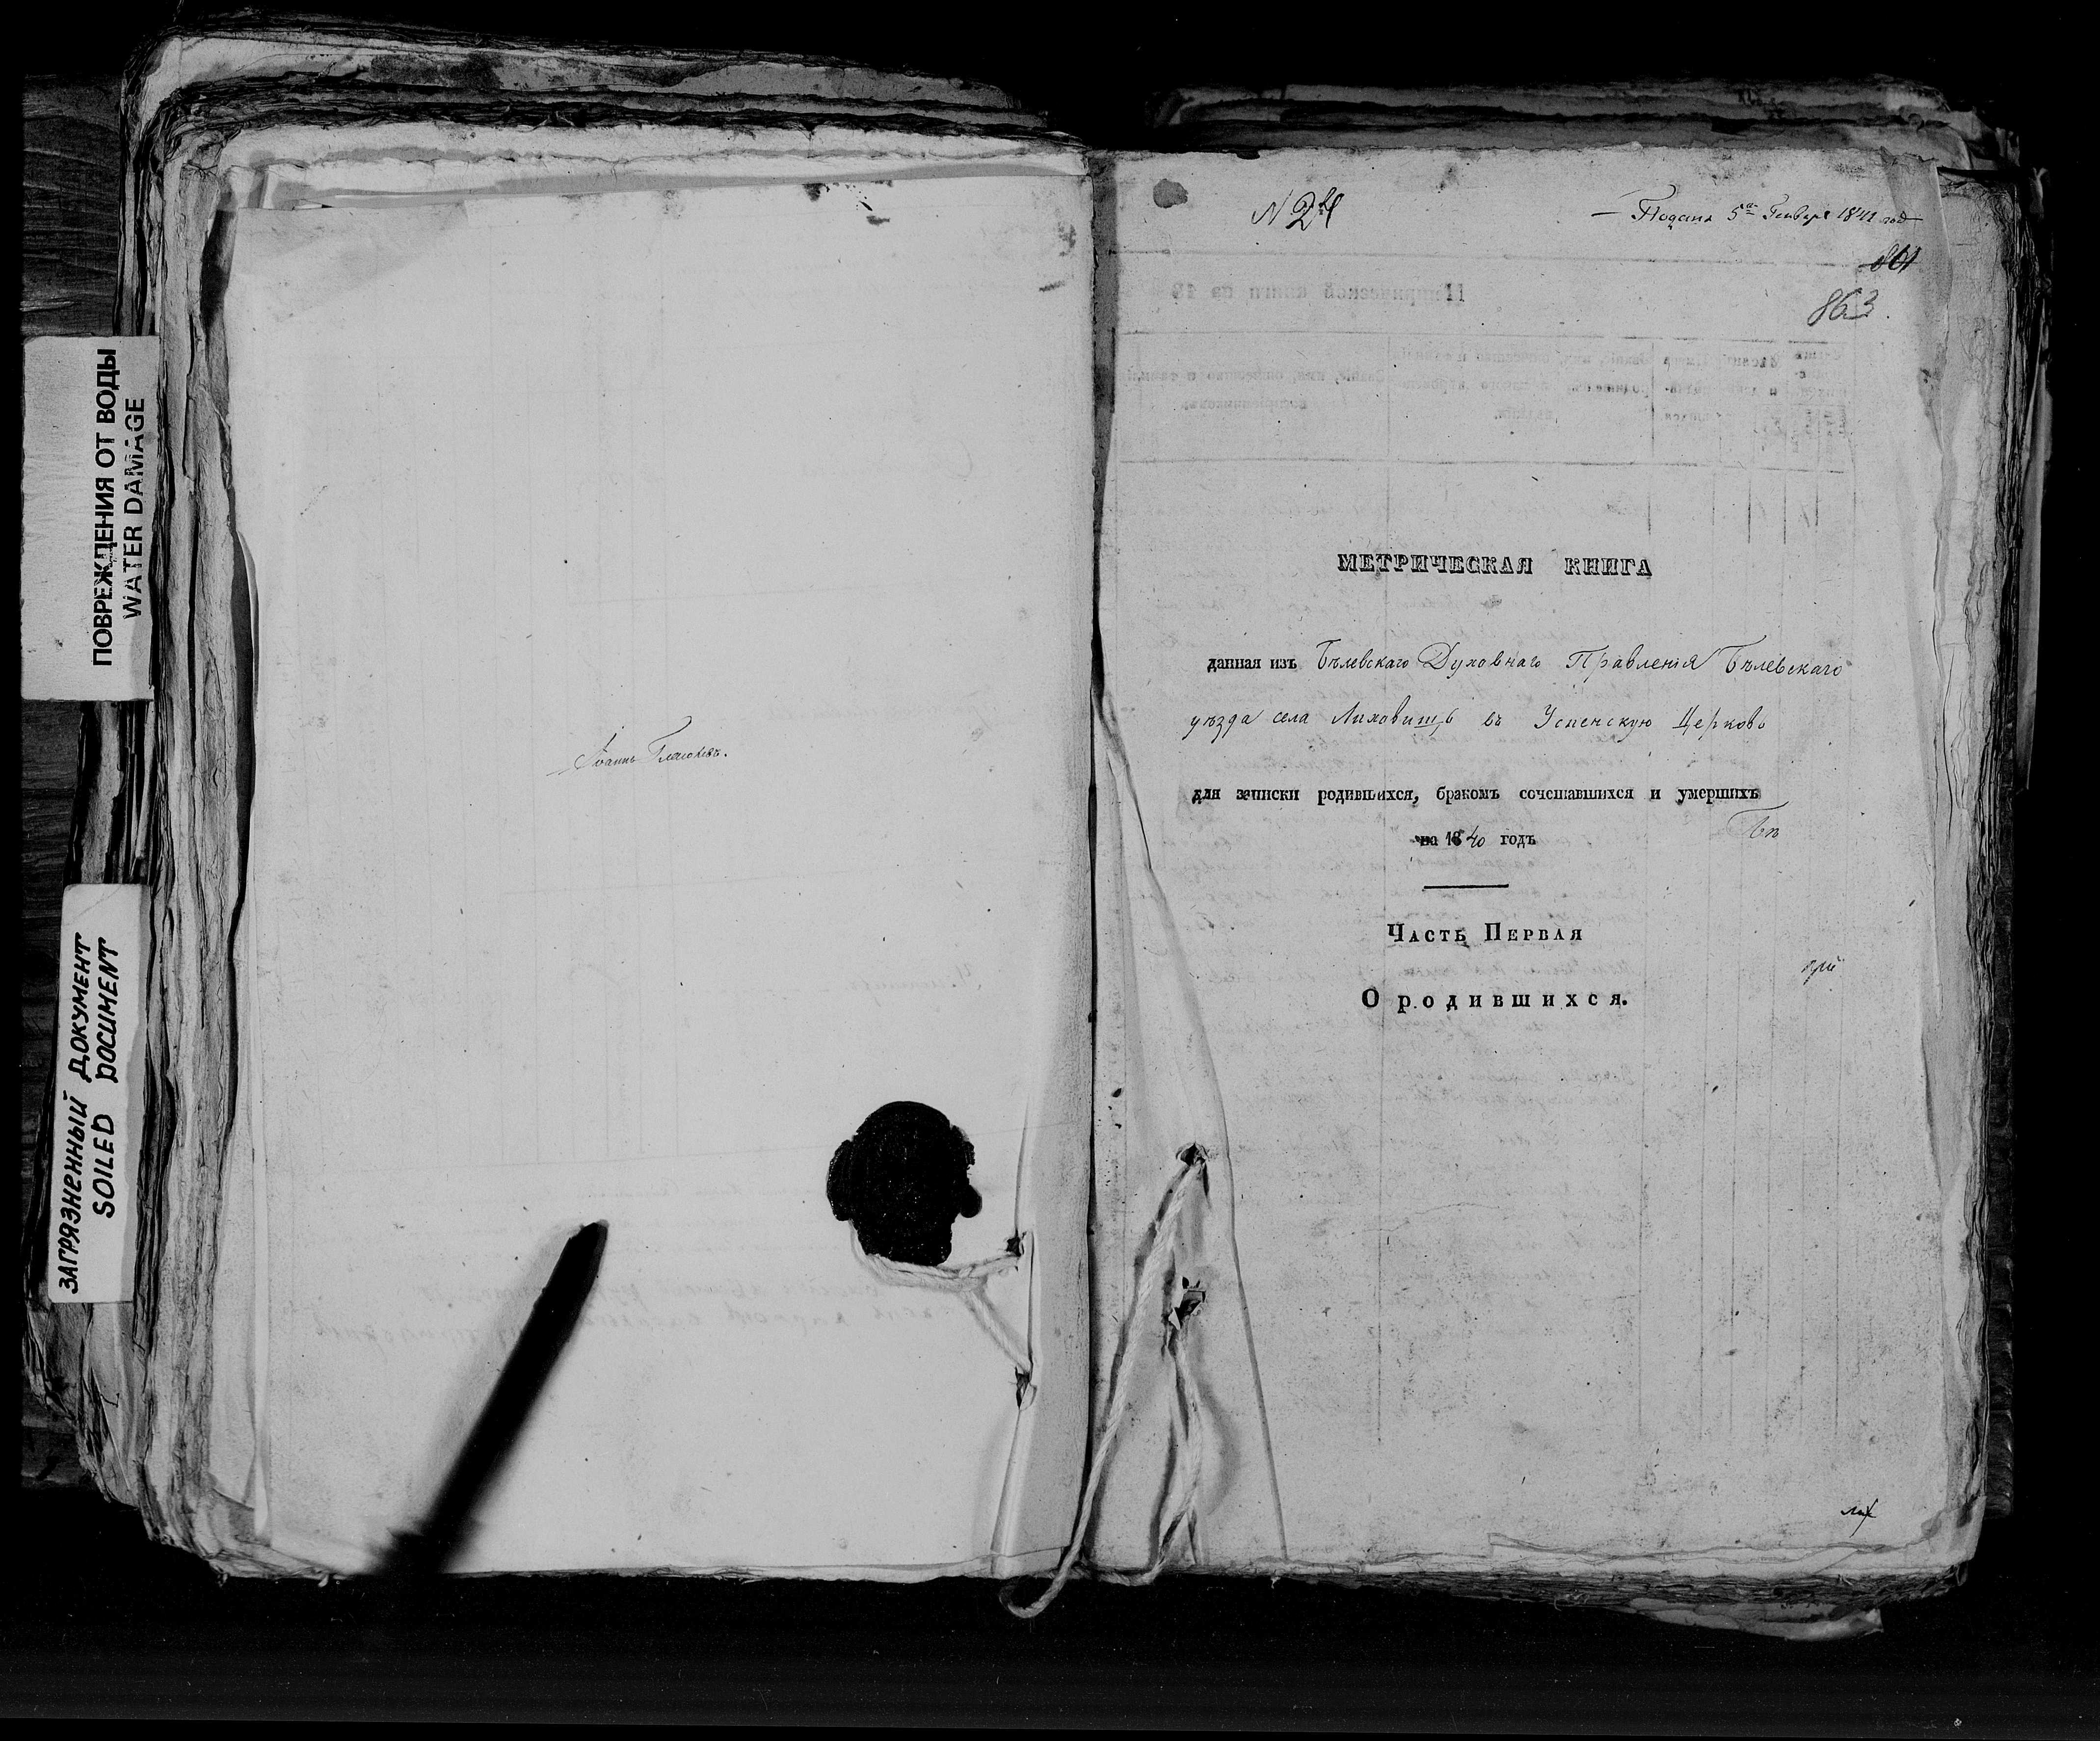 ПОВРЕЖДЕНИЯ ОТ ВОДЫ
WATER DAMAGE
ЗАГРЯЗНЕННЫЙ ДОКУМЕНТ
SOILED DOCUMENT
Іоаннъ
N 24
Подана 5го Генваря 1841 год
801
863.
МЕТРИЧЕСКАЯ КНИГА
данная изъ Бѣлевскаго Духовнаго Правленія Бѣлевскаго
уѣзда села Лиховищь въ Успенскую Церковь
для записки родившихся, бракомъ сочетавшихся и умершихъ
на 1840 годъ
Бѣ
ЧАСТЬ ПЕРВАЯ
О родившихся.